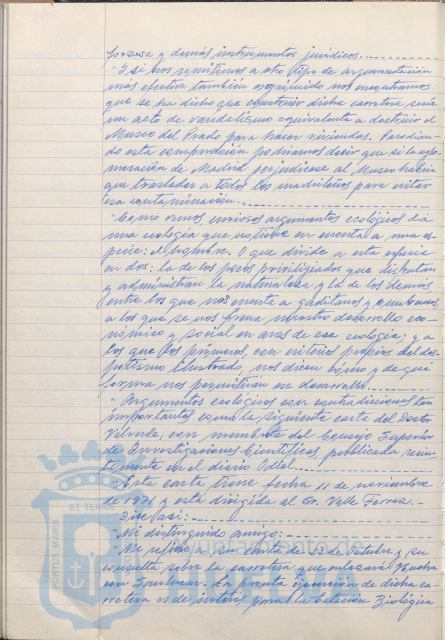 forzosa y demás instrumentos jurídicos.
"Y si nos remitimos a otro tipo de argumentación
más efectiva también esgrimido nos encontramos
que se ha dicho que construir dicha carretera sería
un acto de vandalismo equivalente a destruir el
Museo del Prado para hacer viviendas. Parodian-
do esta comparación podríamos decir que si la aglo-
meración de Madrid perjudicase al Museo habría
que trasladar a todos los madrileños para evitar
esa contaminación.
"Como vemos curiosos argumentos ecológicos dá
una ecología que no tiene en cuenta a una es-
pecie: el hombre. O que divide a esta especie
en dos: la de los pocos privilegiados que disfrutan
y administran la naturaleza y la de los demás
entre los que nos cuenta a gaditanos y onubenses,
a los que se nos frena nuestro desarrollo eco-
nómico y social en aras de esa ecología; y a
los que los primeros, con criterios propios del des-
potismo ilustrado, nos dicen cómo y de qué
forma nos permitirían ese desarrollo.
"Argumentos ecológicos con contradiciones tan
importantes como la siguiente carta del Doctor
Valverde, con membrete del Consejo Superior
de Investigaciones Científicas, publicada recien-
temente en el diario Odiel.
"Esta carta tiene fecha 11 de noviembre
de 1971 y está dirigida al Sr. Valle
"Dice así:
"Mi distinguido amigo:
"Me refiero a su carta de 23 de Octubre y su
consulta sobre la carretera que enlazará Huelva
con Sanlúcar. La pronta ejecución de dicha ca-
rretera es de interés para la Estación Biológica
PORTUS MARIS ET TERRAE